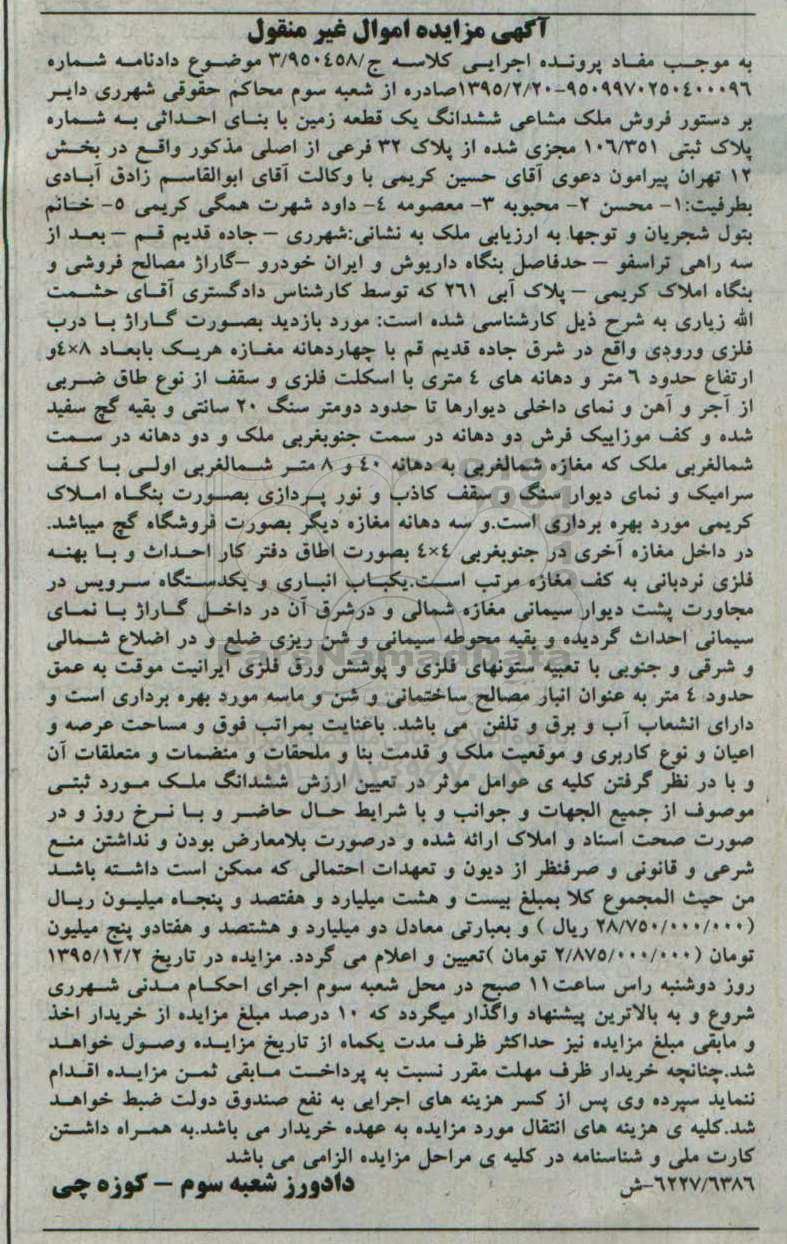 آگهی مزایده اموال غیر منقول
به موجب مفاد پرونده اجرایی کلاسه ج/۳/۹۵۰۴۵۸ موضوع دادنامه شماره
۹۵۰۹۹۷۰۲۵۰۴۰۰۰۹۶-۱۳۹۵/۲/۲۰صادره از شعبه سوم محاکم حقوقی شهرری دایر
بر دستور فروش ملک مشاعی ششدانگ یک قطعه زمین با بنای احداثی به شماره
پلاک ثبتی ۱۰۶/۳۵۱ مجزی شده از پلاک ۳۲ فرعی از اصلی مذکور واقع در بخش
۱۲ تهران پیرامون دعوی آقای حسین کریمی با وکالت آقای ابوالقاسم زادق آبادی
بطرفیت:۱- محسن ۲- محبوبه ۳- معصومه ٤- داود شهرت همگی کریمی ۵- خانم
بتول شجریان و توجها به ارزیابی ملک به نشانی:شهرری – جاده قدیم قم – بعد از
سه راهی تراسفو – حدفاصل بنگاه داریوش و ایران خودرو –گاراژ مصالح فروشی و
بنگاه املاک کریمی – پلاک آبی ۲۶۱ که توسط کارشناس دادگستری آقای حشمت
الله زیاری به شرح ذیل کارشناسی شده است: مورد بازدید بصورت گاراژ با درب
فلزی ورودی واقع در شرق جاده قدیم قم با چهاردهانه مغازه هریک بابعاد ۸×٤و
ارتفاع حدود ۶ متر و دهانه های ٤ متری با اسکلت فلزی و سقف از نوع طاق ضربی
از آجر و آهن و نمای داخلی دیوارها تا حدود دومتر سنگ ۲۰ سانتی و بقیه گچ سفید
شده و کف موزاییک فرش دو دهانه در سمت جنوبغربی ملک و دو دهانه در سمت
شمالغربی ملک که مغازه شمالغربی به دهانه ٤۰ و ۸ متر شمالغربی اولی با کف
سرامیک و نمای دیوار سنگ و سقف کاذب و نور پردازی بصورت بنگاه املاک
کریمی مورد بهره برداری است.و سه دهانه مغازه دیگر بصورت فروشگاه گچ میباشد.
در داخل مغازه آخری در جنوبغربی ٤×٤ بصورت اطاق دفتر کار احداث و با بهنه
فلزی نردبانی به کف مغازه مرتب است.یکباب انباری و یکدستگاه سرویس در
مجاورت پشت دیوار سیمانی مغازه شمالی و درشرق آن در داخل گاراژ با نمای
سیمانی احداث گردیده و بقیه محوطه سیمانی و شن ریزی ضلع و در اضلاع شمالی
و شرقی و جنوبی با تعبیه ستونهای فلزی و پوشش ورق فلزی ایرانیت موقت به عمق
حدود ٤ متر به عنوان انبار مصالح ساختمانی و شن و ماسه مورد بهره برداری است و
دارای انشعاب آب و برق و تلفن می باشد. باعنایت بمراتب فوق و مساحت عرصه و
اعیان و نوع کاربری و موقعیت ملک و قدمت بنا و ملحقات و منضمات و متعلقات آن
و با در نظر گرفتن کلیه ی عوامل موثر در تعیین ارزش ششدانگ ملک مورد ثبتی
موصوف از جمیع الجهات و جوانب و با شرایط حال حاضر و با نرخ روز و در
صورت صحت اسناد و املاک ارائه شده و درصورت بلامعارض بودن و نداشتن منع
شرعی و قانونی و صرفنظر از دیون و تعهدات احتمالی که ممکن است داشته باشد
من حیث المجموع کلا بمبلغ بیست و هشت میلیارد و هفتصد و پنجاه میلیون ریال
(۲۸/۷۵۰/۰۰۰/۰۰۰ ریال ) و بعبارتی معادل دو میلیارد و هشتصد و هفتادو پنج میلیون
تومان (۲/۸۷۵/۰۰۰/۰۰۰ تومان )تعیین و اعلام می گردد. مزایده در تاریخ ۱۳۹۵/۱۲/۲
روز دوشنبه راس ساعت۱۱ صبح در محل شعبه سوم اجرای احکام مدنی شهرری
شروع و به بالاترین پیشنهاد واگذار میگردد که ۱۰ درصد مبلغ مزایده از خریدار اخذ
و مابقی مبلغ مزایده نیز حداکثر ظرف مدت یکماه از تاریخ مزایده وصول خواهد
شد.چنانچه خریدار ظرف مهلت مقرر نسبت به پرداخت مابقی ثمن مزایده اقدام
ننماید سپرده وی پس از کسر هزینه های اجرایی به نفع صندوق دولت ضبط خواهد
شد.کلیه ی هزینه های انتقال مورد مزایده به عهده خریدار می باشد.به همراه داشتن
کارت ملی و شناسنامه در کلیه ی مراحل مزایده الزامی می باشد
۶۲۲۷/۶۳۸۶-ش دادورز شعبه سوم – کوزه چی
ParsNamadData